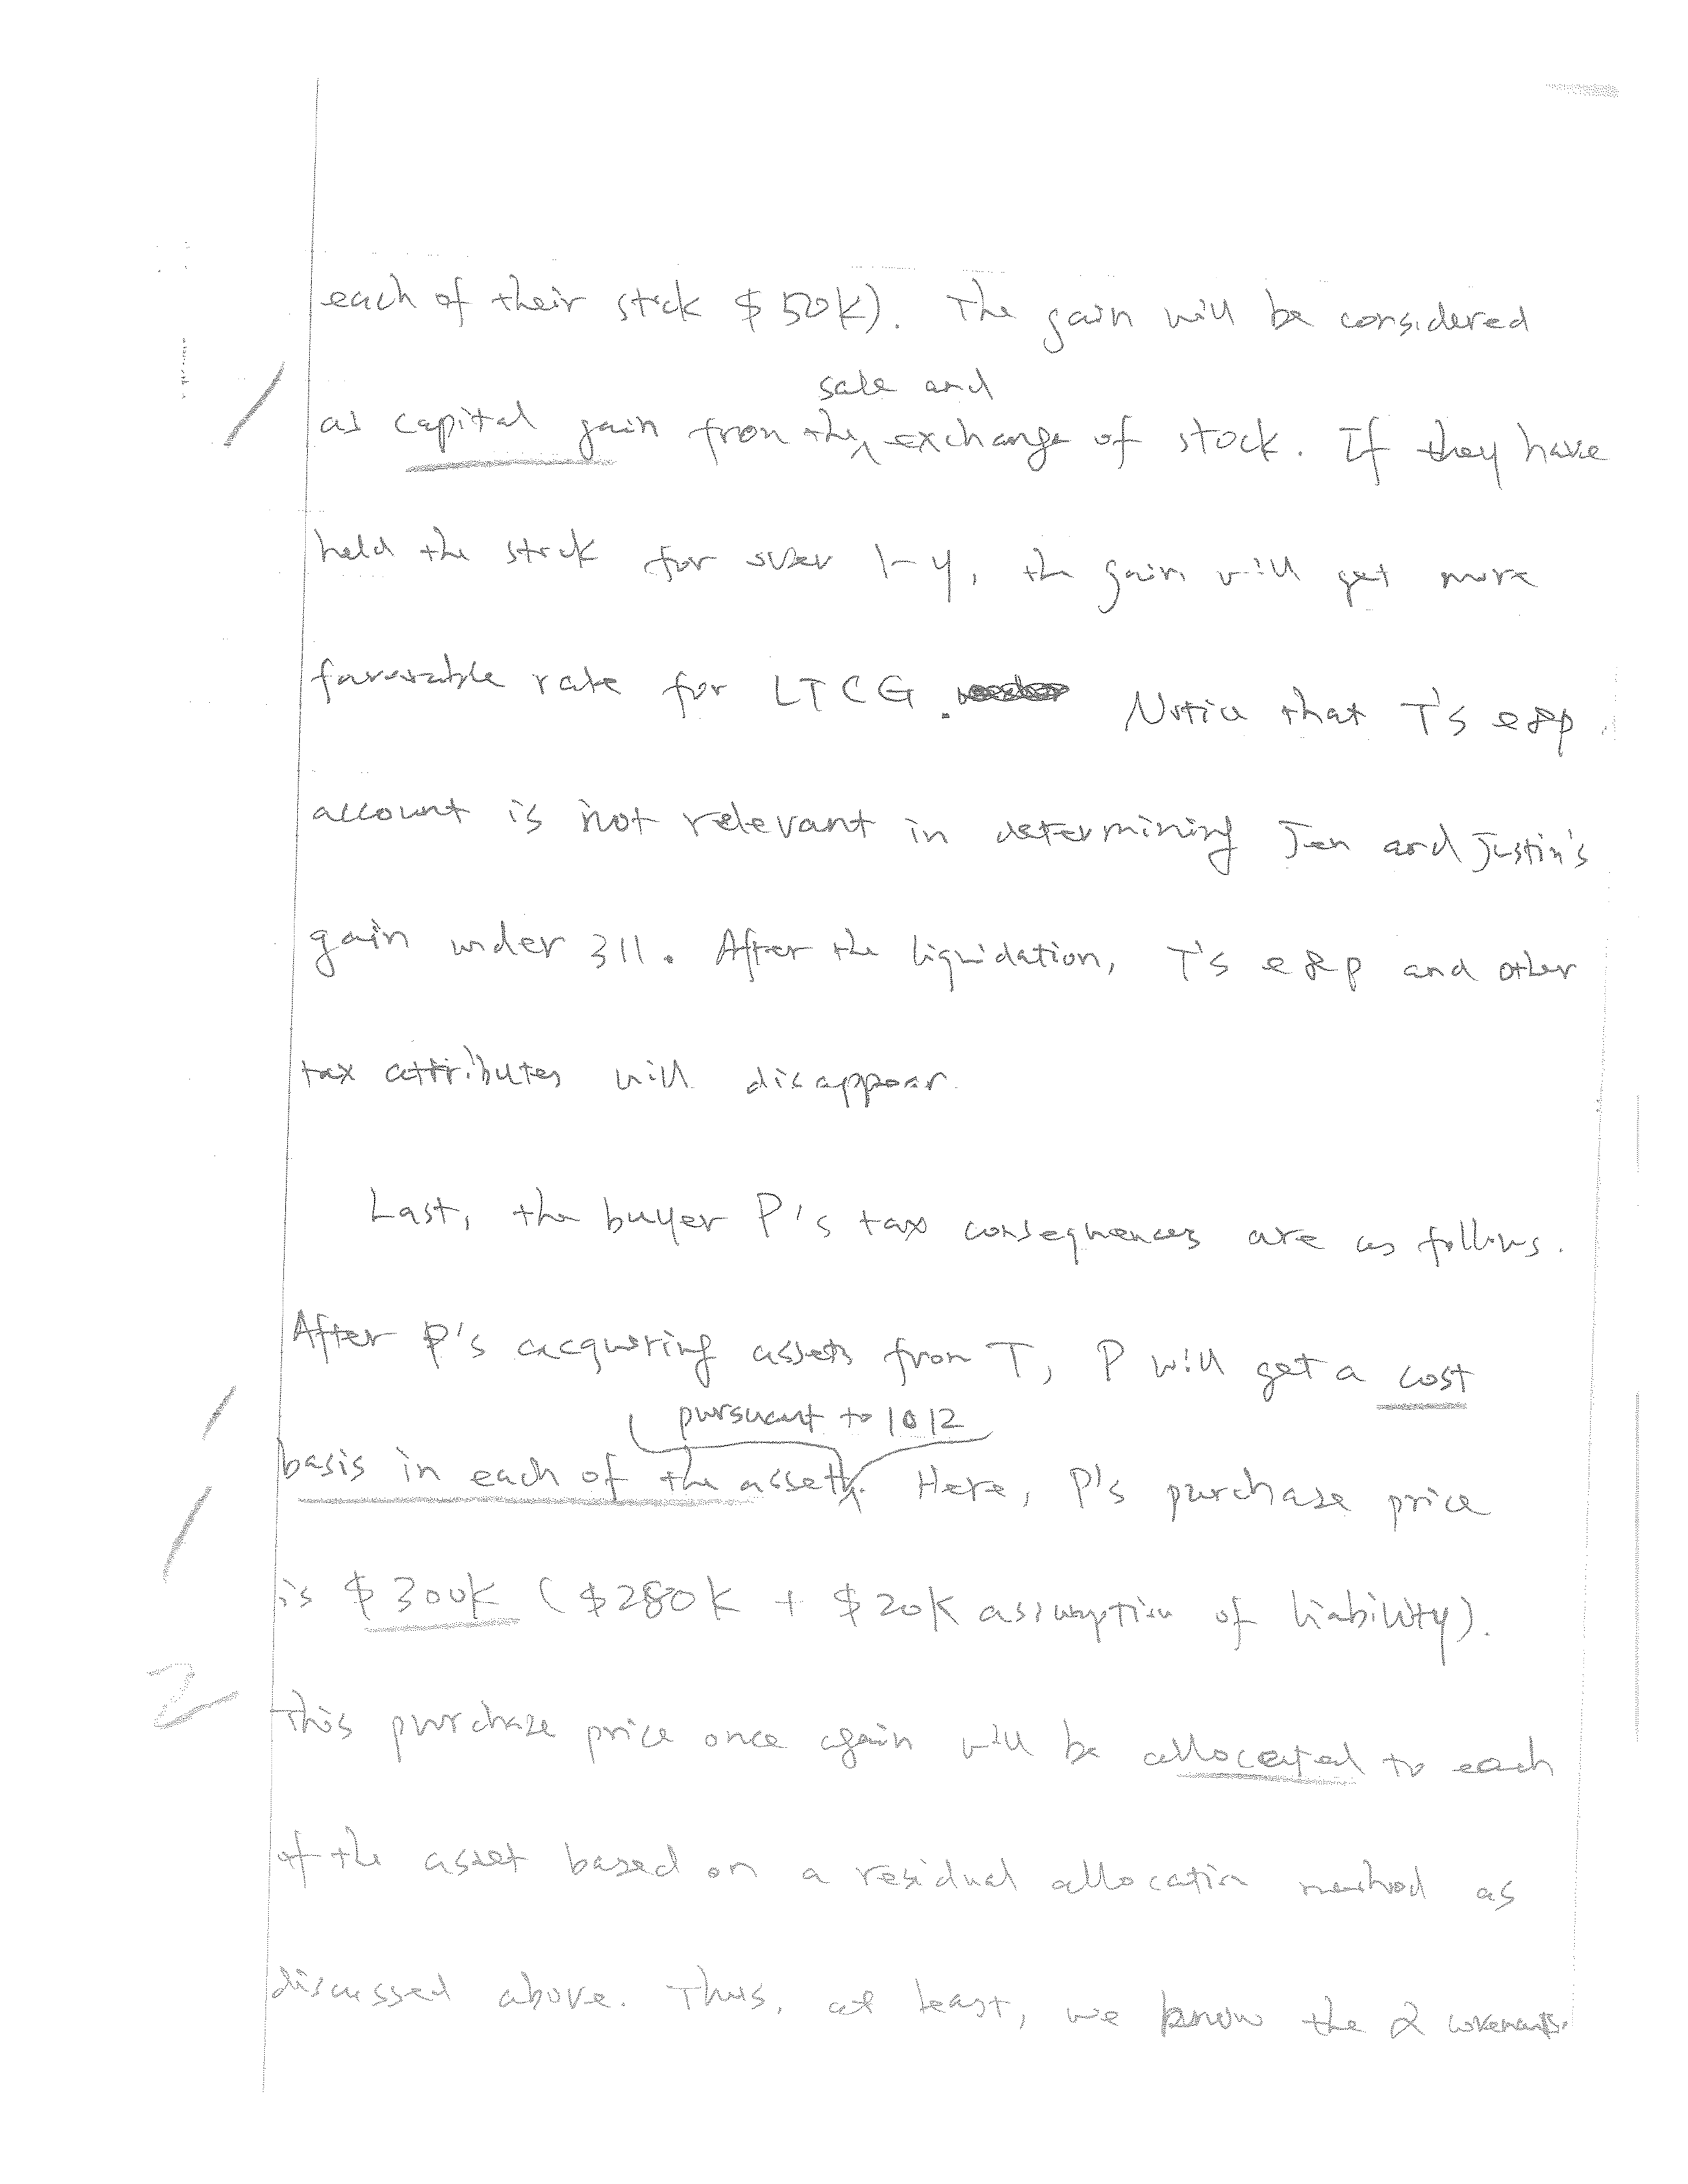 each of their stock $50K). The gain will be considered
sale and
as capital gain from the exchange of stock. If they have
held the stock for over 1-y, the gain will get more
favorable rate for LTCG. Notice that T's e&p
account is not relevant in determining Jen and Justin's
gain under 311. After the liquidation, T's e&p and other
tax attributes will disappear.
Last, the buyer P's tax consequences are as follows.
After P's acquiring assets from T, P will get a cost
pursuant to 1012
basis in each of the assets. Here, P's purchase price
is $300K ($280K + $20K assumption of liability).
2
This purchase price once again will be allocated to each
of the asset based on a residual allocation method as
discussed above. Thus, at least, we know the 2 covenants